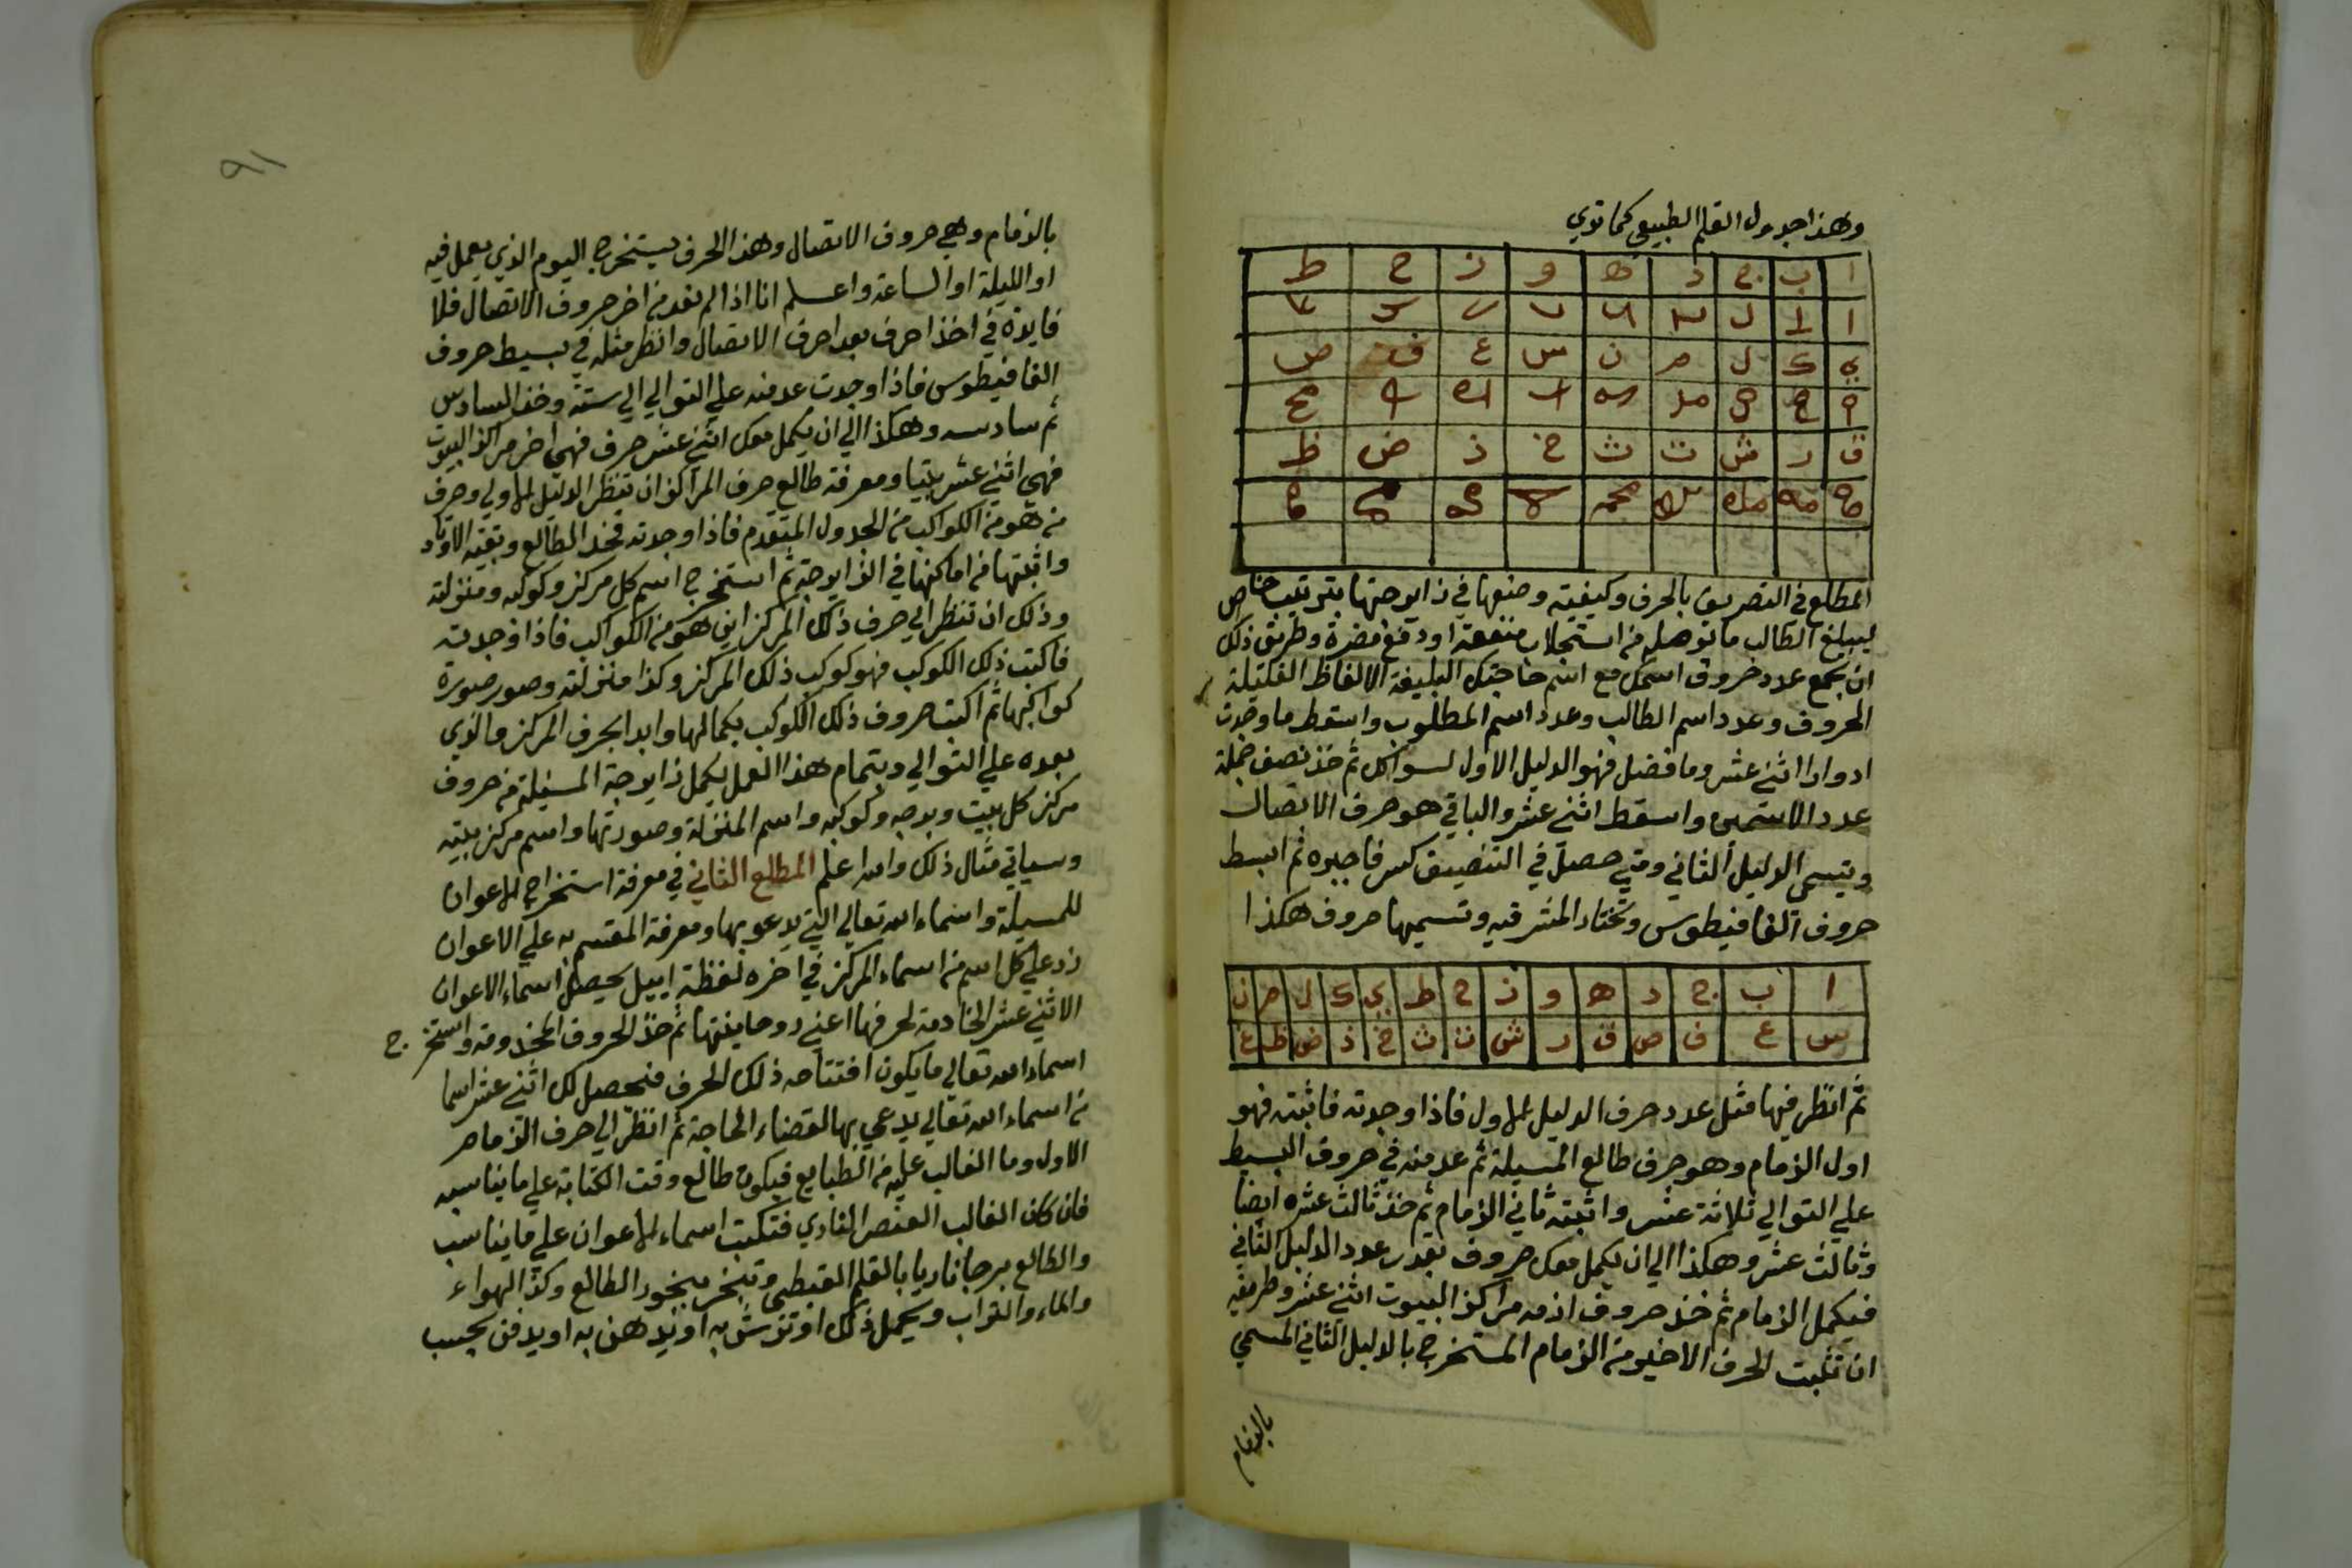 وهذا جدول القلم الطبيعي كما توي
ا ب ج د ه و ز ح ط
ي ك ل م ن س ع ف ص
ق ر ش ت ث خ ذ ض ظ
المطلع في التصريف بالحرف وكيفية وضعها في زايرجتها بترتيب خاص
ليبلغ الطالب ما توصله من استجلاب منفعة او دفع مضرة وطريق ذلك
ان تجمع عدد حروف اسمك مع اسم حاجتك البليغة الالفاظ القليلة
الحروف وعدد اسم الطالب وعدد اسم المطلوب واسقط ما وجدت
ادوارا اثني عشر وما فضل فهو الدليل الاول لسوالك ثم خذ نصف جملة
عدد الاسمين واسقط اثني عشر والباقي هو حرف الاتصال
ويتسمى الدليل الثاني ومتي حصل في التنصيف كسر فاجبره ثم ابسط
حروف الفافيطوس وتختار المشرقيه وتسميها حروف هكذا
ا ب ج د ه و ز ح ط ي ك ل م ن
س ع ف ص ق ر ش ت ث خ ذ ض ظ غ
ثم انظر فيها مثل عدد حرف الدليل الاول فاذا وجدته فاثبته فهو
اول الزمام وهو حرف طالع المسيلة ثم عد منه في حروف البسيط
علي التوالي ثلاثة عشر واثبته ثاني الزمام ثم خذ ثالث عشره ايضا
وثالث عشر وهكذا الي ان يكمل معك حروف بقدر عدد الدليل الثاني
فيكمل الزمام ثم خذ حروف ازمه مراكز البيوت اثني عشر وطريقه
ان تثبت الحرف الاخير من الزمام المستخرج بالدليل الثاني المسمي
بالزمام
٩١
بالزمام وهي حروف الاتصال وهذا الحرف يستخرج اليوم الذي يعمل فيه
او الليلة او الساعة واعلم انا اذا لم نعد من اخر حروف الاتصال فلا
فايدة في اخذ احرف بعد احرف الاتصال وانظر مثله في بسيط حروف
الفافيطوس فاذا وجدت عد منه علي التوالي الي ستة وخذ السادس
ثم سادسه وهكذا الي ان يكمل معك اثني عشر حرف فهي اخر مراكز البيوت
فهي اثني عشر بيتا ومعرفة طالع حرف المراكز ان تنظر الدليل الاول وحرف
من هو من الكواكب من الجدول المتقدم فاذا وجدته فخذ الطالع وبقية الاوتاد
واثبتها من اماكنها في الزايرجة ثم استخرج اسم كل مركز وكوكبه ومنزلته
وذلك ان تنظر الي حرف ذلك المركز اين هو من الكواكب فاذا وجدته
فاكتب ذلك الكوكب فهو كوكب ذلك المركز وكذا منزلته وصور صورة
كواكبها ثم اكتب حروف ذلك الكوكب بكمالها وابدا بحرف المركز والذي
بعده علي التوالي وبتمام هذا العمل يكمل زايرجة المسيلة من حروف
مركز كل بيت وبرجه وكوكبه واسم المنزلة وصورتها واسم مركز بيته
وسياتي مثال ذلك والله اعلم المطلع الثاني في معرفة استخراج الاعوان
للمسيلة واسماء الله تعالي التي يدعو بها ومعرفة المقسم به علي الاعوان
زد علي كل اسم من اسماء المركز في اخره لفظة اييل يحصل اسماء الاعوان
الاثني عشر الخادمة لحرفها اعني روحانيتها ثم خذ الحروف المخدومة واستخرج
اسماء الله تعالي ما يكون افتتاحه ذلك الحرف فيحصل لك اثني عشر اسما
من اسماء الله تعالي يدعي بها لقضاء الحاجة ثم انظر الي حرف الزمام
الاول وما الغالب عليه من الطبايع فيكون طالع وقت الكتابة علي ما يناسبه
فان كان الغالب العنصر الناري فتكتب اسماء الاعوان علي ما يناسب
والطالع برجا ناريا بالقلم القبطي وتبخر ببخور الطالع وكذا الهواء
والماء والتراب ويحمل ذلك او ترش به او يدهن به او يدفن بحسب